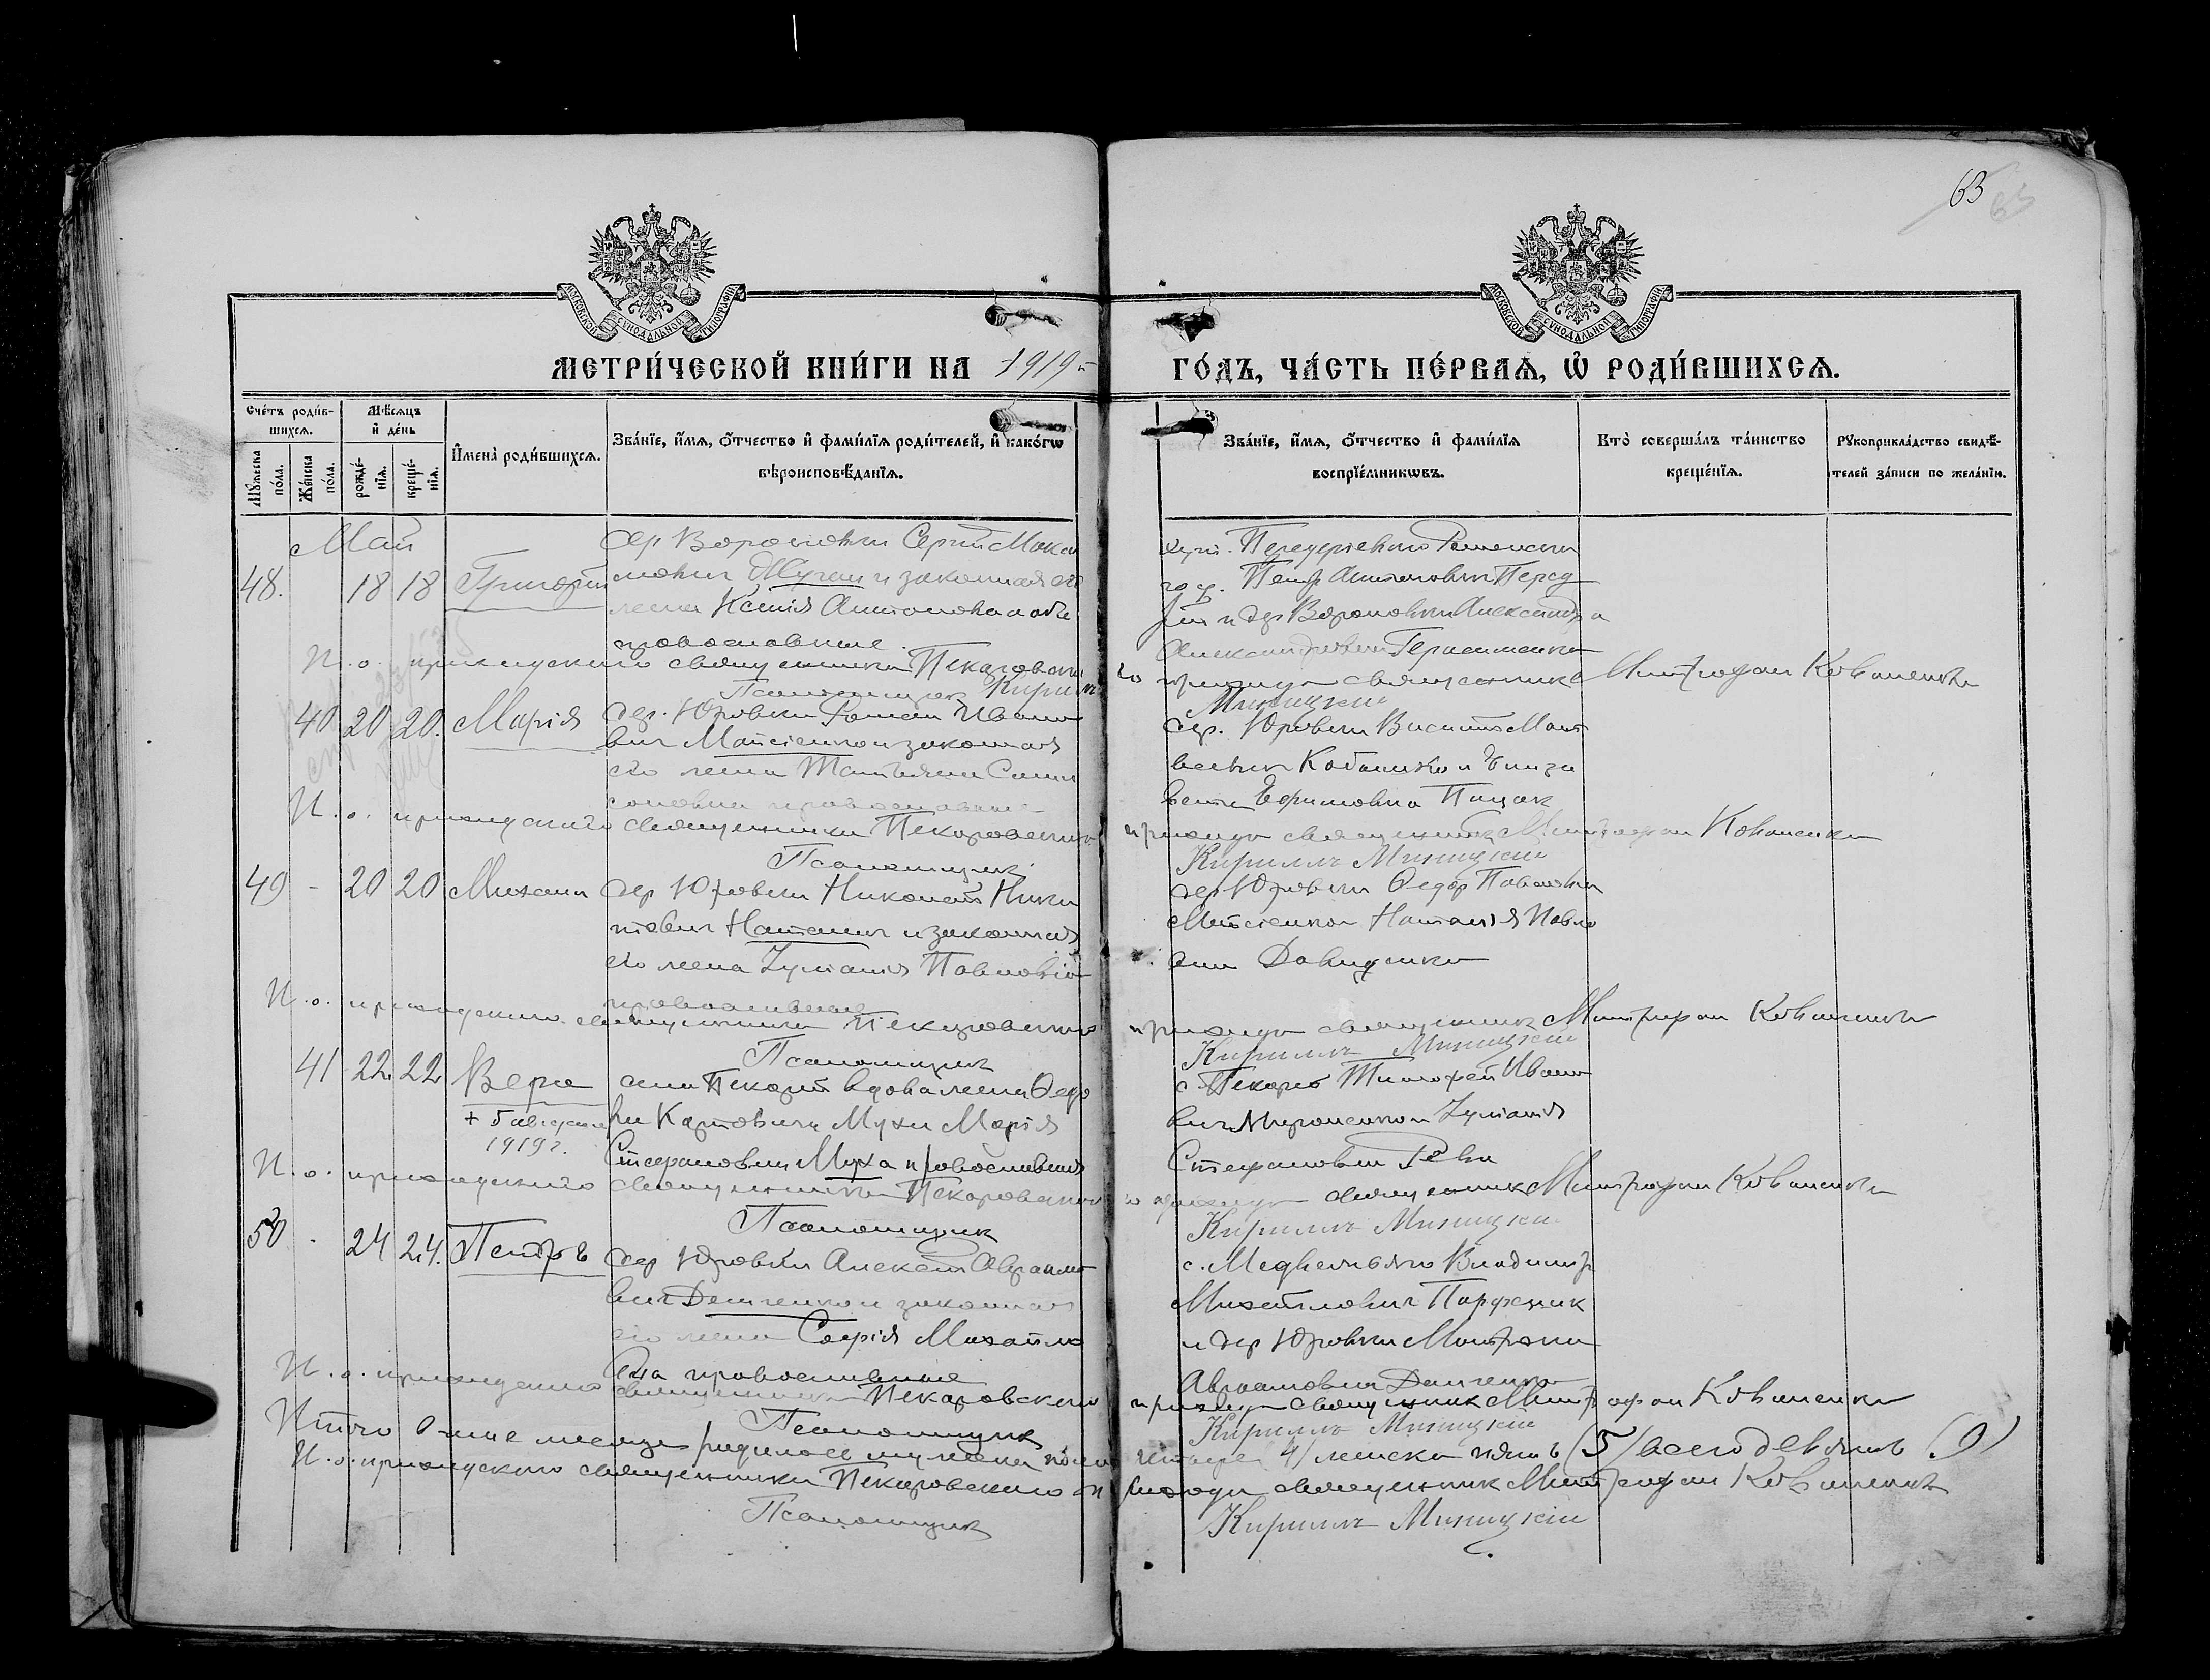 63
МОСКОВСКОЙ СѴНОДАЛЬНОЙ ТИПОГРАФІИ
МОСКОВСКОЙ СѴНОДАЛЬНОЙ ТИПОГРАФІИ
МЕТРИ́ЧЕСКОЙ КНИ́ГИ НА 1919
ГО́ДЪ, ЧА́СТЬ ПЕ́РВАЯ, Ѡ РОДИ́ВШИХСЯ.
Сче́тъ роди́вшихся.
Му́жеска по́ла.
Же́нска по́ла.
Мѣ́сяцъ и҆ де́нь
рожде́нїя.
креще́нїя.
И҆мена̀ роди́вшихся.
Зва́нїе, и҆́мя, ѻ҆́тчество и҆ фами́лїя роди́телей, и҆ како́гѡ
вѣроисповѣ́данїя.
Зва́нїе, и҆́мя, ѻ҆́тчество и҆ фами́лїя
воспрїе́мникѡвъ.
Кто̀ соверша́лъ та́инство
креще́нїя.
Рꙋкоприкла́дство свидѣ́-
телей за́писи по жела́нїю.
Май
48. 18 18 Григорій
дер Вороновки Сергій Макси
мович и законная его
жена Ксенія Антоновна оба
православные.
Петр Антонович
и дер Вороновки Александра
Александровна Герасименко
И. о. приходского священника Пекаровского прихода священник Митрофан Коваленко
Псаломщик Кирилл Миницкій
40 20 20. Марія
дер. Юровки Роман Ивано
вич Мойсіенко и законная
его жена Татьяна Сам
соновна православные
дер. Юровки Василій Мат
веевич и Елиза
вета Ефимовна
И. о. приходского священника Пекаровского прихода священник Митрофан Коваленко
Псаломщик Кирилл Миницкій
49 - 20 20 Михаил
дер Юровки Николай Ники
тович и законная
его жена Іуліанія Павловна
православные
дер Юровки Федор Павлович
Мойсіенко и Наталія Павло
вна Давиденко
И. о. приходского священника Пекаровского прихода священник Митрофан Коваленко
Псаломщик Кирилл Миницкій
41 22. 22. Вера
+ 5 августа
1919 г.
села Пекарей вдова жена Федо
ра Карповича Мухи Марія
Стефановна Муха православная
с. Пекарей Тимофей Ивано
вич Мироненко и Іуліанія
Стефановна Рева
И. о. приходского священника Пекаровского прихода священник Митрофан Коваленко
Псаломщик Кирилл Миницкій
50 - 24 24. Петръ
дер Юровки Алексей Авраамо
вич Демченко и законная
его жена Софія Михайло
вна православные
с. Медвежьяго Владимір
Михайлович
и дер Юровки Матрона
Авраамовна
И. о. приходского священника Пекаровского прихода священник Митрофан Коваленко
Псаломщик Кирилл Миницкій
Итого в мае месяце родилось мужеска пола четыре 4/ женска пять (5/ всего девять (9)
И. о. приходского священника Пекаровского прихода священник Митрофан Коваленко
Псаломщик Кирилл Миницкій